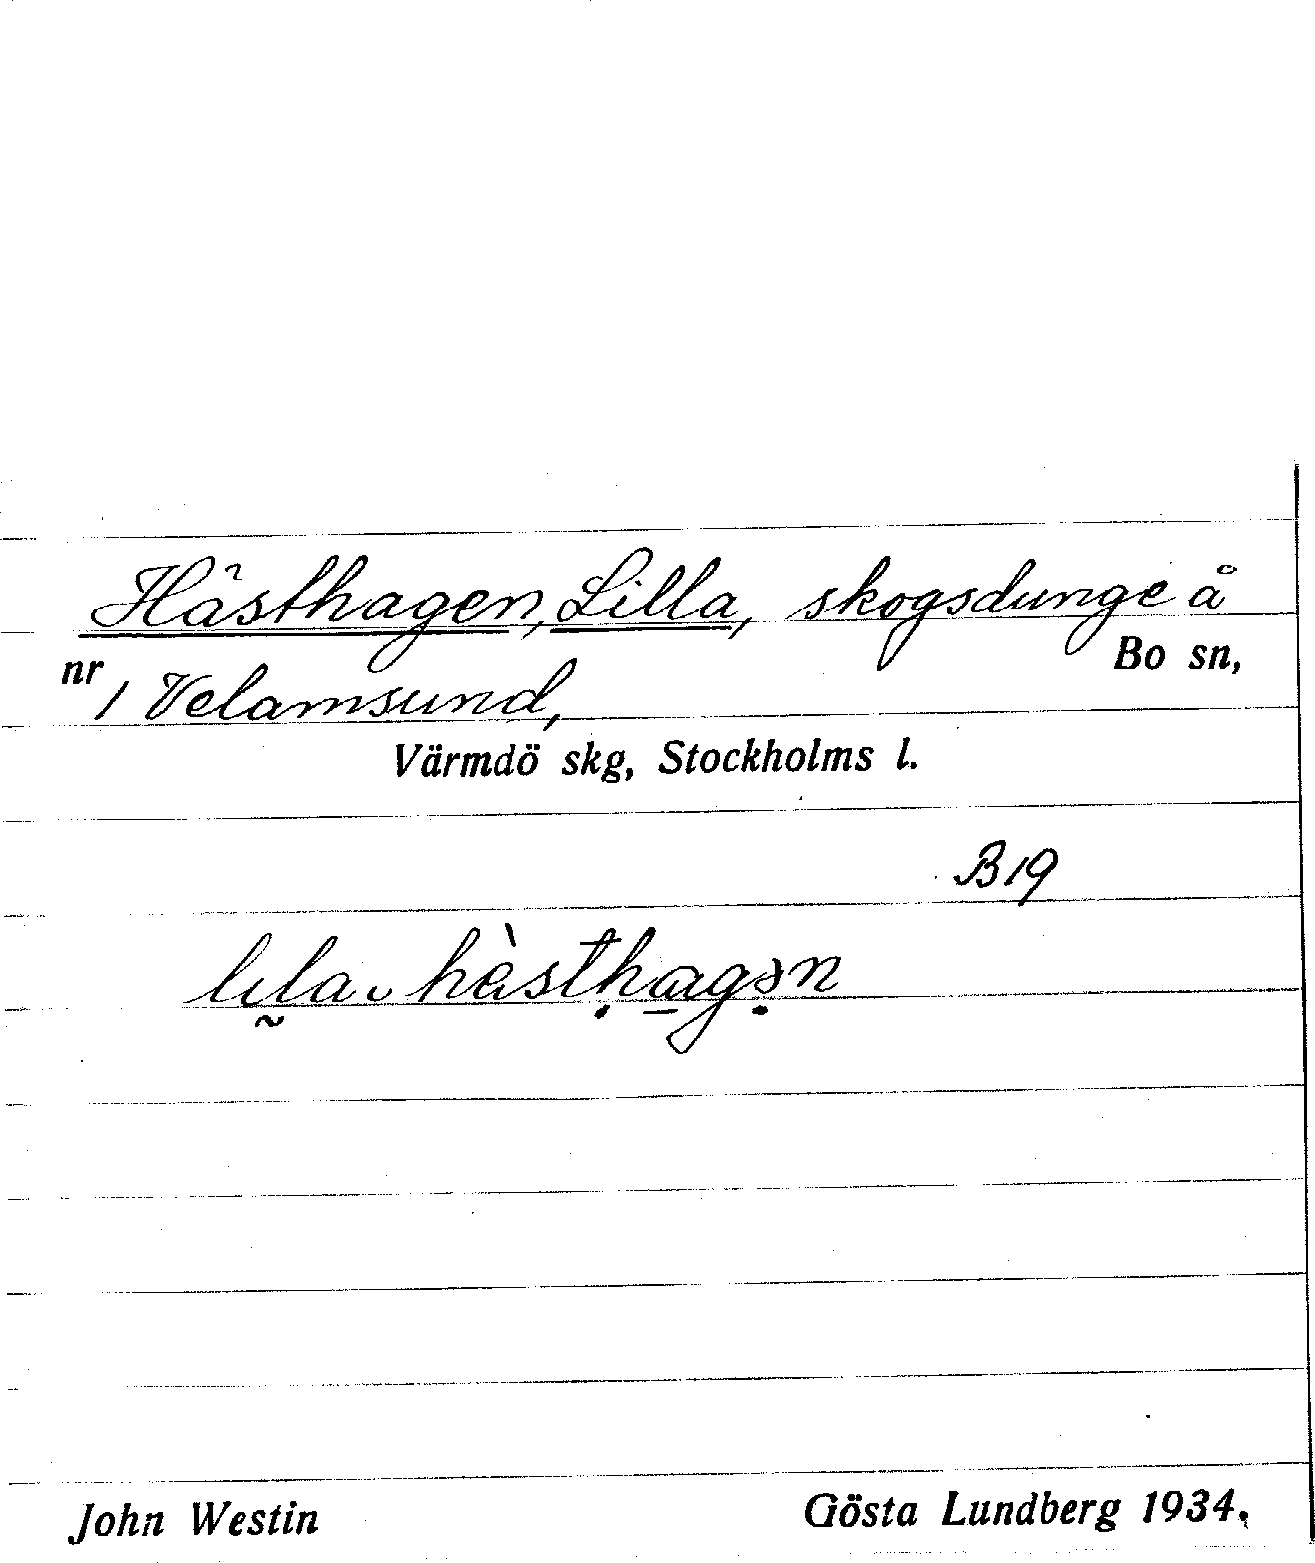 Hästhagen, Lilla, skogsdunge å
nr 1 Velamsund, Bo sn,
Värmdö skg, Stockholms l.
B19
lila hàsthagən
John Westin Gösta Lundberg 1934.